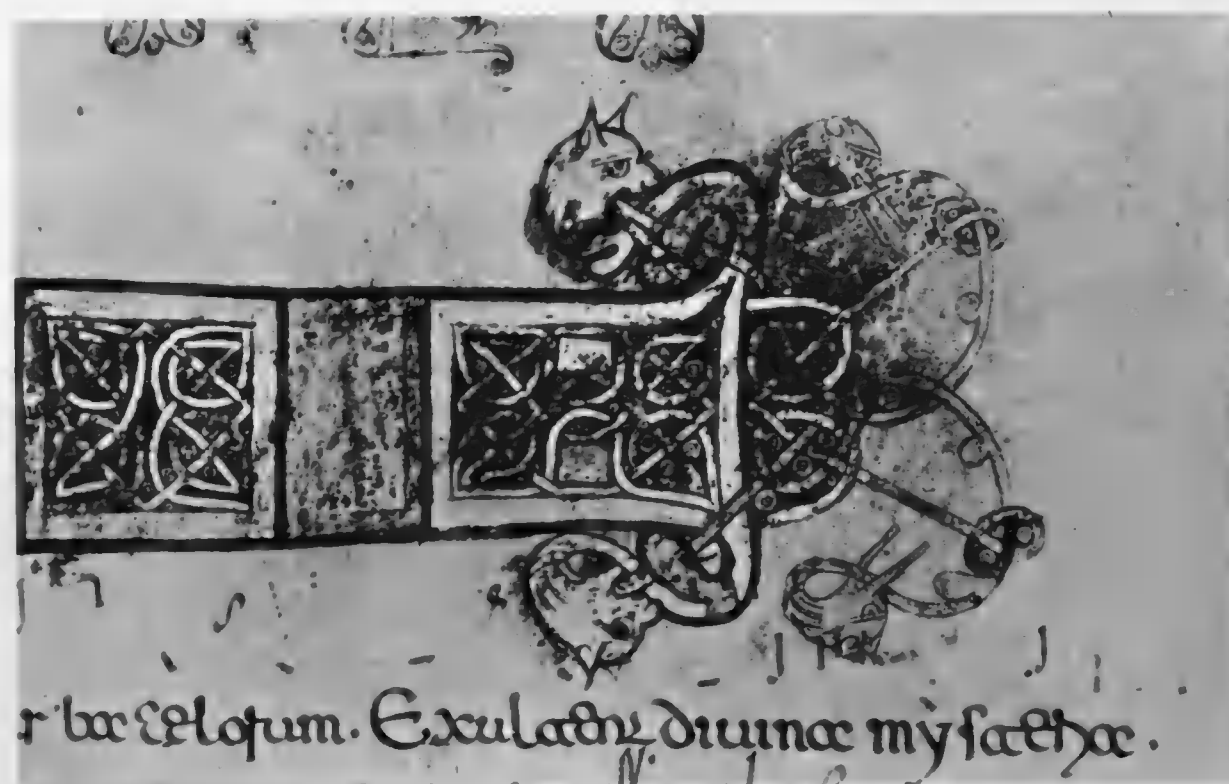 r ba celorum. Exultent diuina mẏsteria.